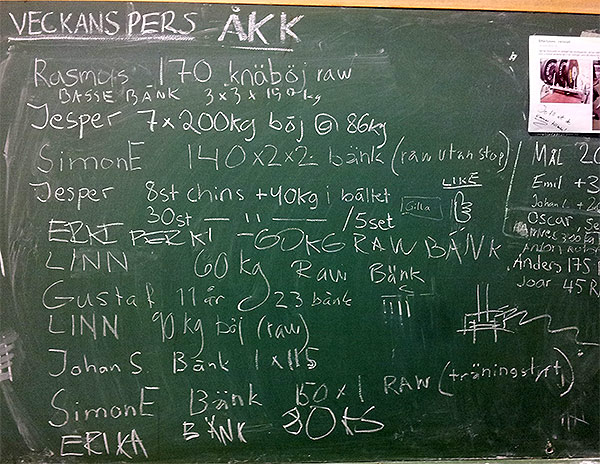 VECKANS PERS ÅKK
Rasmus 170 knäböj raw
BASSE BÄNK 3x3x kg
Jesper 7x200kg böj @ 86kg
SimonE 140x2x2 bänk (raw utan stop)
Jesper 8st chins +40kg i bältet
30st — 11 — /5set
LIKE
Gilla
ERKI PERKI -60KG RAW BÄNK
LINN 60 kg Raw Bänk
Gustaf 11 år 23 bänk
LINN 90 kg böj (raw)
Johan S. Bänk 1x115
SimonE Bänk 150x1 RAW (träningstört)
ERIKA BÄNK 80KS
Mål 20
Emil +3
Johan L +2
Oscar, Se
Anders 175
Joar 45 R